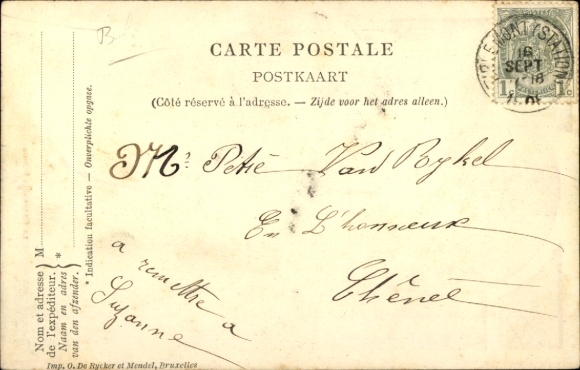 B
CARTE POSTALE
POSTKAART
(Côté réservé à l'adresse. — Zijde voor het adres alleen.)
(STATION)
16
SEPT
1c 1c
Mr Petié Van Rykel
En L'honneux
Thénet
a remettre a
Suzanne
* Indication facultative — Onverplichte opgave.
M
*
Nom et adresse
de l'expéditeur.
Naam en adres
van den afzender.
Imp. O. De Rycker et Mendel, Bruxelles